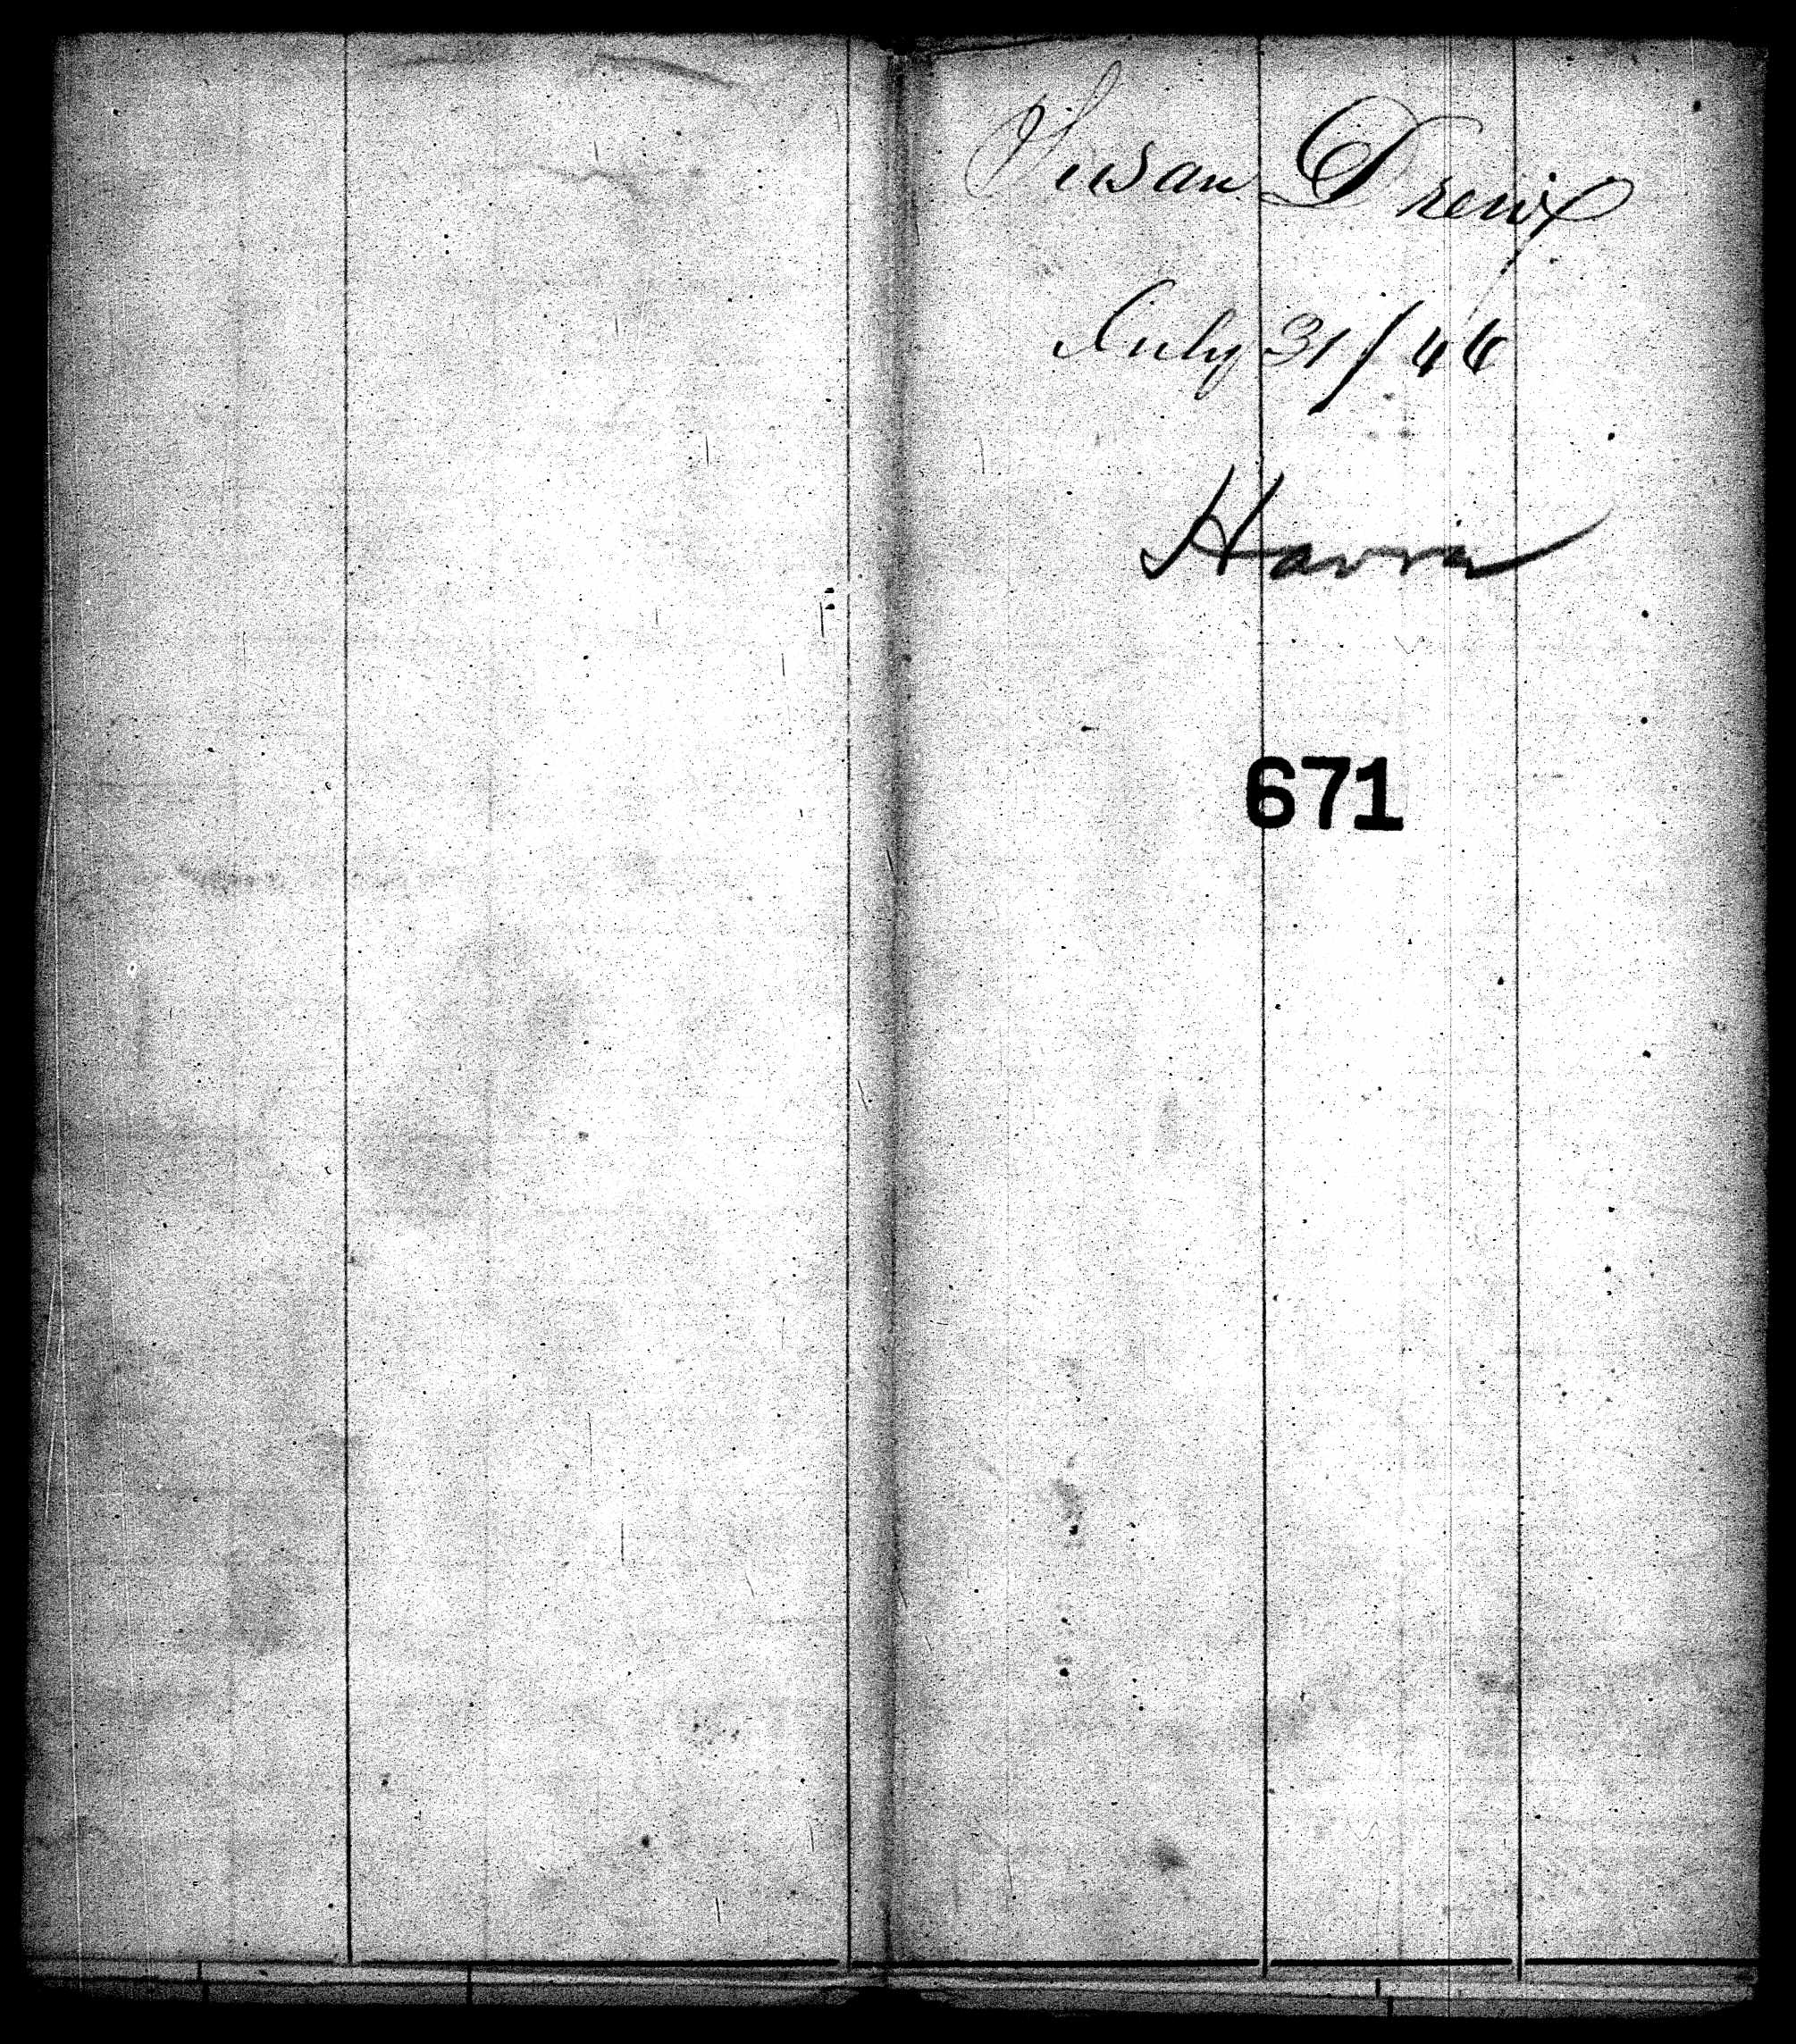 Susan Drew
July 31/46
Havre
671